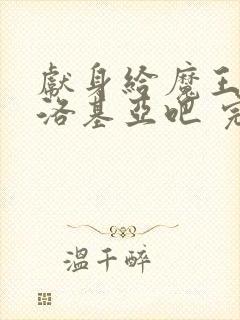 獻身給魔王
洛基亞吧 完
溫千醉